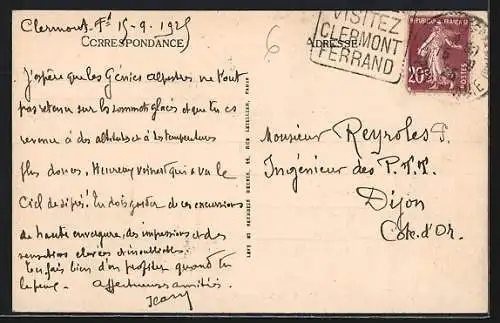 Clermont-Fd 15-9-1925
CORRESPONDANCE
ADRESSE
6
VISITEZ
CLERMONT
FERRAND
REPUBLIQUE FRANÇAISE
20c
POSTES
J'espère que les Génies alpestres ne t'ont
pas retenu sur les sommets glacés et que tu es
revenu à des altitudes et à des températures
plus douces. Heureux veinard qui a vu le
Ciel de si près! Tu dois garder de ces excursions
de haute envergure, des impressions et des
sensations élevées et inoubliables.
Tu fais bien d'en profiter quand tu
le peux. Affectueuses amitiés.
Monsieur Reyroles P.
Ingénieur des P.T.T.
Dijon
Côte-d'Or.